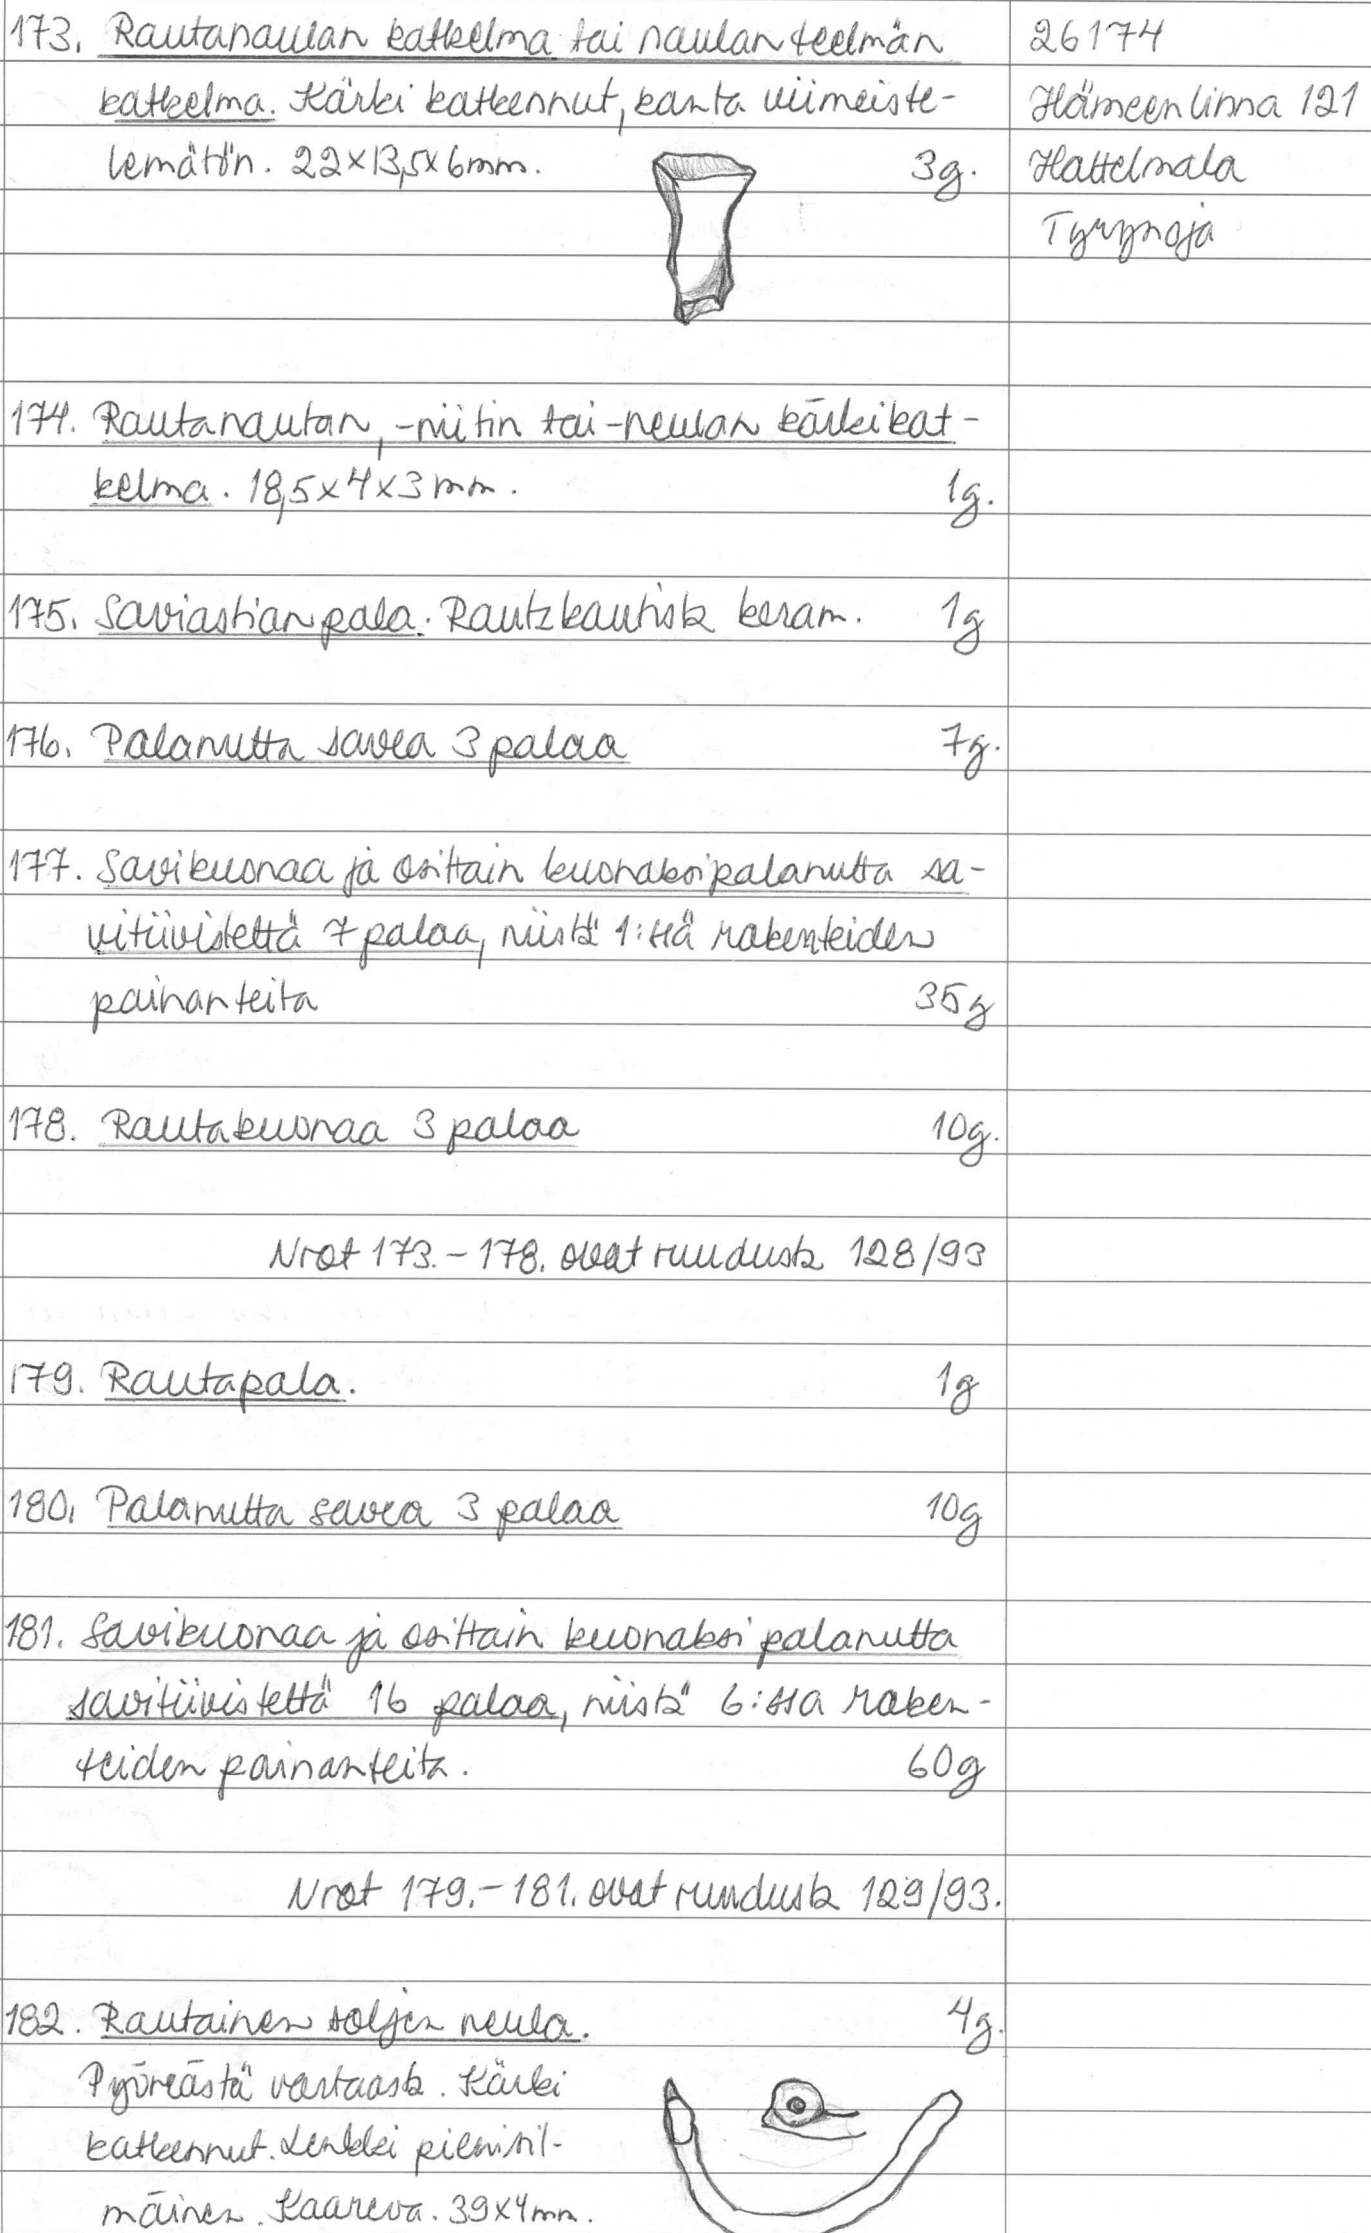 173. Rautanaulan katkelma tai naulan teelmän
katkelma. Kärki katkennut, kanta viimeiste-
lemätön. 22x13,5x6mm. 3g.
26174
Hämeenlinna 121
Hattelmala
Tyrynoja
174. Rautanaulan, -niitin tai -neulan kärkikat-
kelma. 18,5x4x3mm. 1g.
175. Saviastian pala. Rautakautista keram. 1g
176. Palanutta savea 3 palaa 7g.
177. Savikuonaa ja osittain kuonaksi palanutta sa-
vitiivistettä 7 palaa, niistä 1:ssä rakenteiden
painanteita 35g
178. Rautakuonaa 3 palaa 10g.
Nrot 173.-178. ovat ruudusta 128/93
179. Rautapala. 1g
180. Palanutta savea 3 palaa 10g
181. Savikuonaa ja osittain kuonaksi palanutta
savitiivistettä 16 palaa, niistä 6:ssa raken-
teiden painanteita. 60g
Nrot 179.-181. ovat ruudusta 129/93.
182. Rautainen soljen neula. 4g.
Pyöreästä vartaasta. Kärki
katkennut. Lenkki pienisil-
mäinen. Kaareva. 39x4mm.